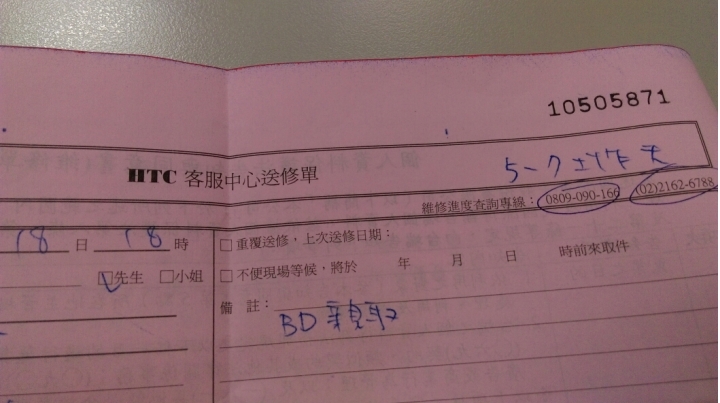 10505871
HTC 客服中心送修單
5-7工作天
維修進度查詢專線：0809-090-166 (02)2162-6788
18 日 18 時
□重覆送修，上次送修日期：
□先生 □小姐
□不便現場等候，將於 年 月 日 時前來取件
備 註：
BD 親取